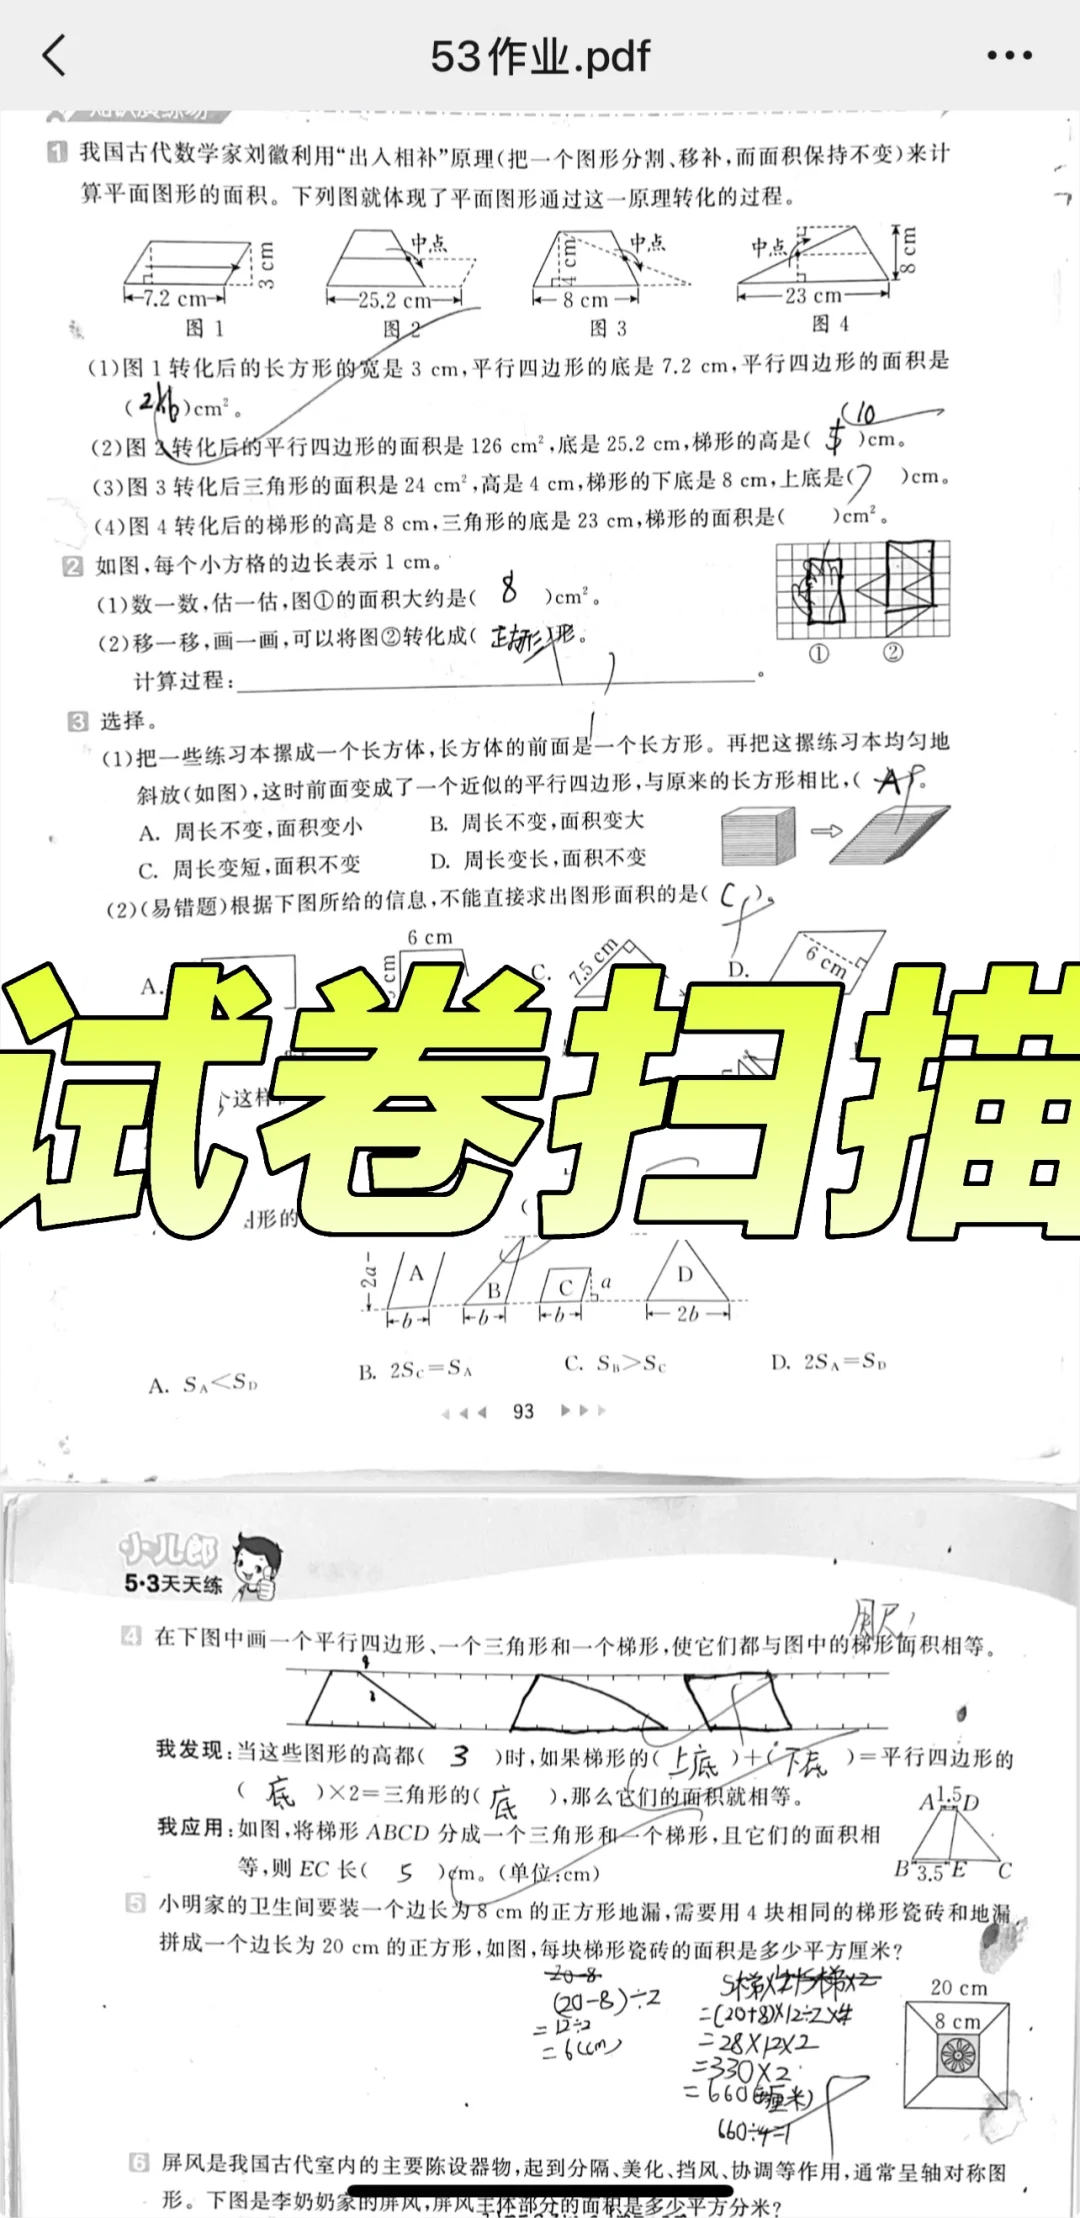 53作业.pdf
1 我国古代数学家刘徽利用“出入相补”原理(把一个图形分割、移补,而面积保持不变)来计
算平面图形的面积。下列图就体现了平面图形通过这一原理转化的过程。
中点 中点 中点
3 cm 4 cm 8 cm
7.2 cm 25.2 cm 8 cm 23 cm
图 1 图 2 图 3 图 4
(1)图 1 转化后的长方形的宽是 3 cm,平行四边形的底是 7.2 cm,平行四边形的面积是
( )cm²。
(10
(2)图 2 转化后的平行四边形的面积是 126 cm²,底是 25.2 cm,梯形的高是( 5 )cm。
(3)图 3 转化后三角形的面积是 24 cm²,高是 4 cm,梯形的下底是 8 cm,上底是( )cm。
(4)图 4 转化后的梯形的高是 8 cm,三角形的底是 23 cm,梯形的面积是( )cm²。
2 如图,每个小方格的边长表示 1 cm。
(1)数一数,估一估,图①的面积大约是( 8 )cm²。
(2)移一移,画一画,可以将图②转化成( )形。
① ②
计算过程: 。
3 选择。
(1)把一些练习本摞成一个长方体,长方体的前面是一个长方形。再把这摞练习本均匀地
斜放(如图),这时前面变成了一个近似的平行四边形,与原来的长方形相比,( A )。
A. 周长不变,面积变小 B. 周长不变,面积变大
C. 周长变短,面积不变 D. 周长变长,面积不变
(2)(易错题)根据下图所给的信息,不能直接求出图形面积的是( C )。
6 cm
A. cm C. 7.5 cm D. 6 cm
试卷扫描
这样
形的
2a A B C a D
b b b 2b
A. S_A<S_D B. 2S_C=S_A C. S_B>S_C D. 2S_A=S_D
93
小儿郎
5·3天天练
用尺!
4 在下图中画一个平行四边形、一个三角形和一个梯形,使它们都与图中的梯形面积相等。
我发现:当这些图形的高都( 3 )时,如果梯形的( 上底 )+( 下底 )=平行四边形的
( 底 )×2=三角形的( 底 ),那么它们的面积就相等。
我应用:如图,将梯形 ABCD 分成一个三角形和一个梯形,且它们的面积相
等,则 EC 长( 5 )cm。(单位:cm)
A 1.5 D
B 3.5 E C
5 小明家的卫生间要装一个边长为 8 cm 的正方形地漏,需要用 4 块相同的梯形瓷砖和地漏
拼成一个边长为 20 cm 的正方形,如图,每块梯形瓷砖的面积是多少平方厘米?
20-8
(20-8)÷2
=12÷2
=6(cm)
=(20+8)×12÷2×4
=28×12×2
=330×2
=660
660÷4=1
20 cm
8 cm
6 屏风是我国古代室内的主要陈设器物,起到分隔、美化、挡风、协调等作用,通常呈轴对称图
形。下图是李奶奶家的屏风,屏风主体部分的面积是多少平方分米?